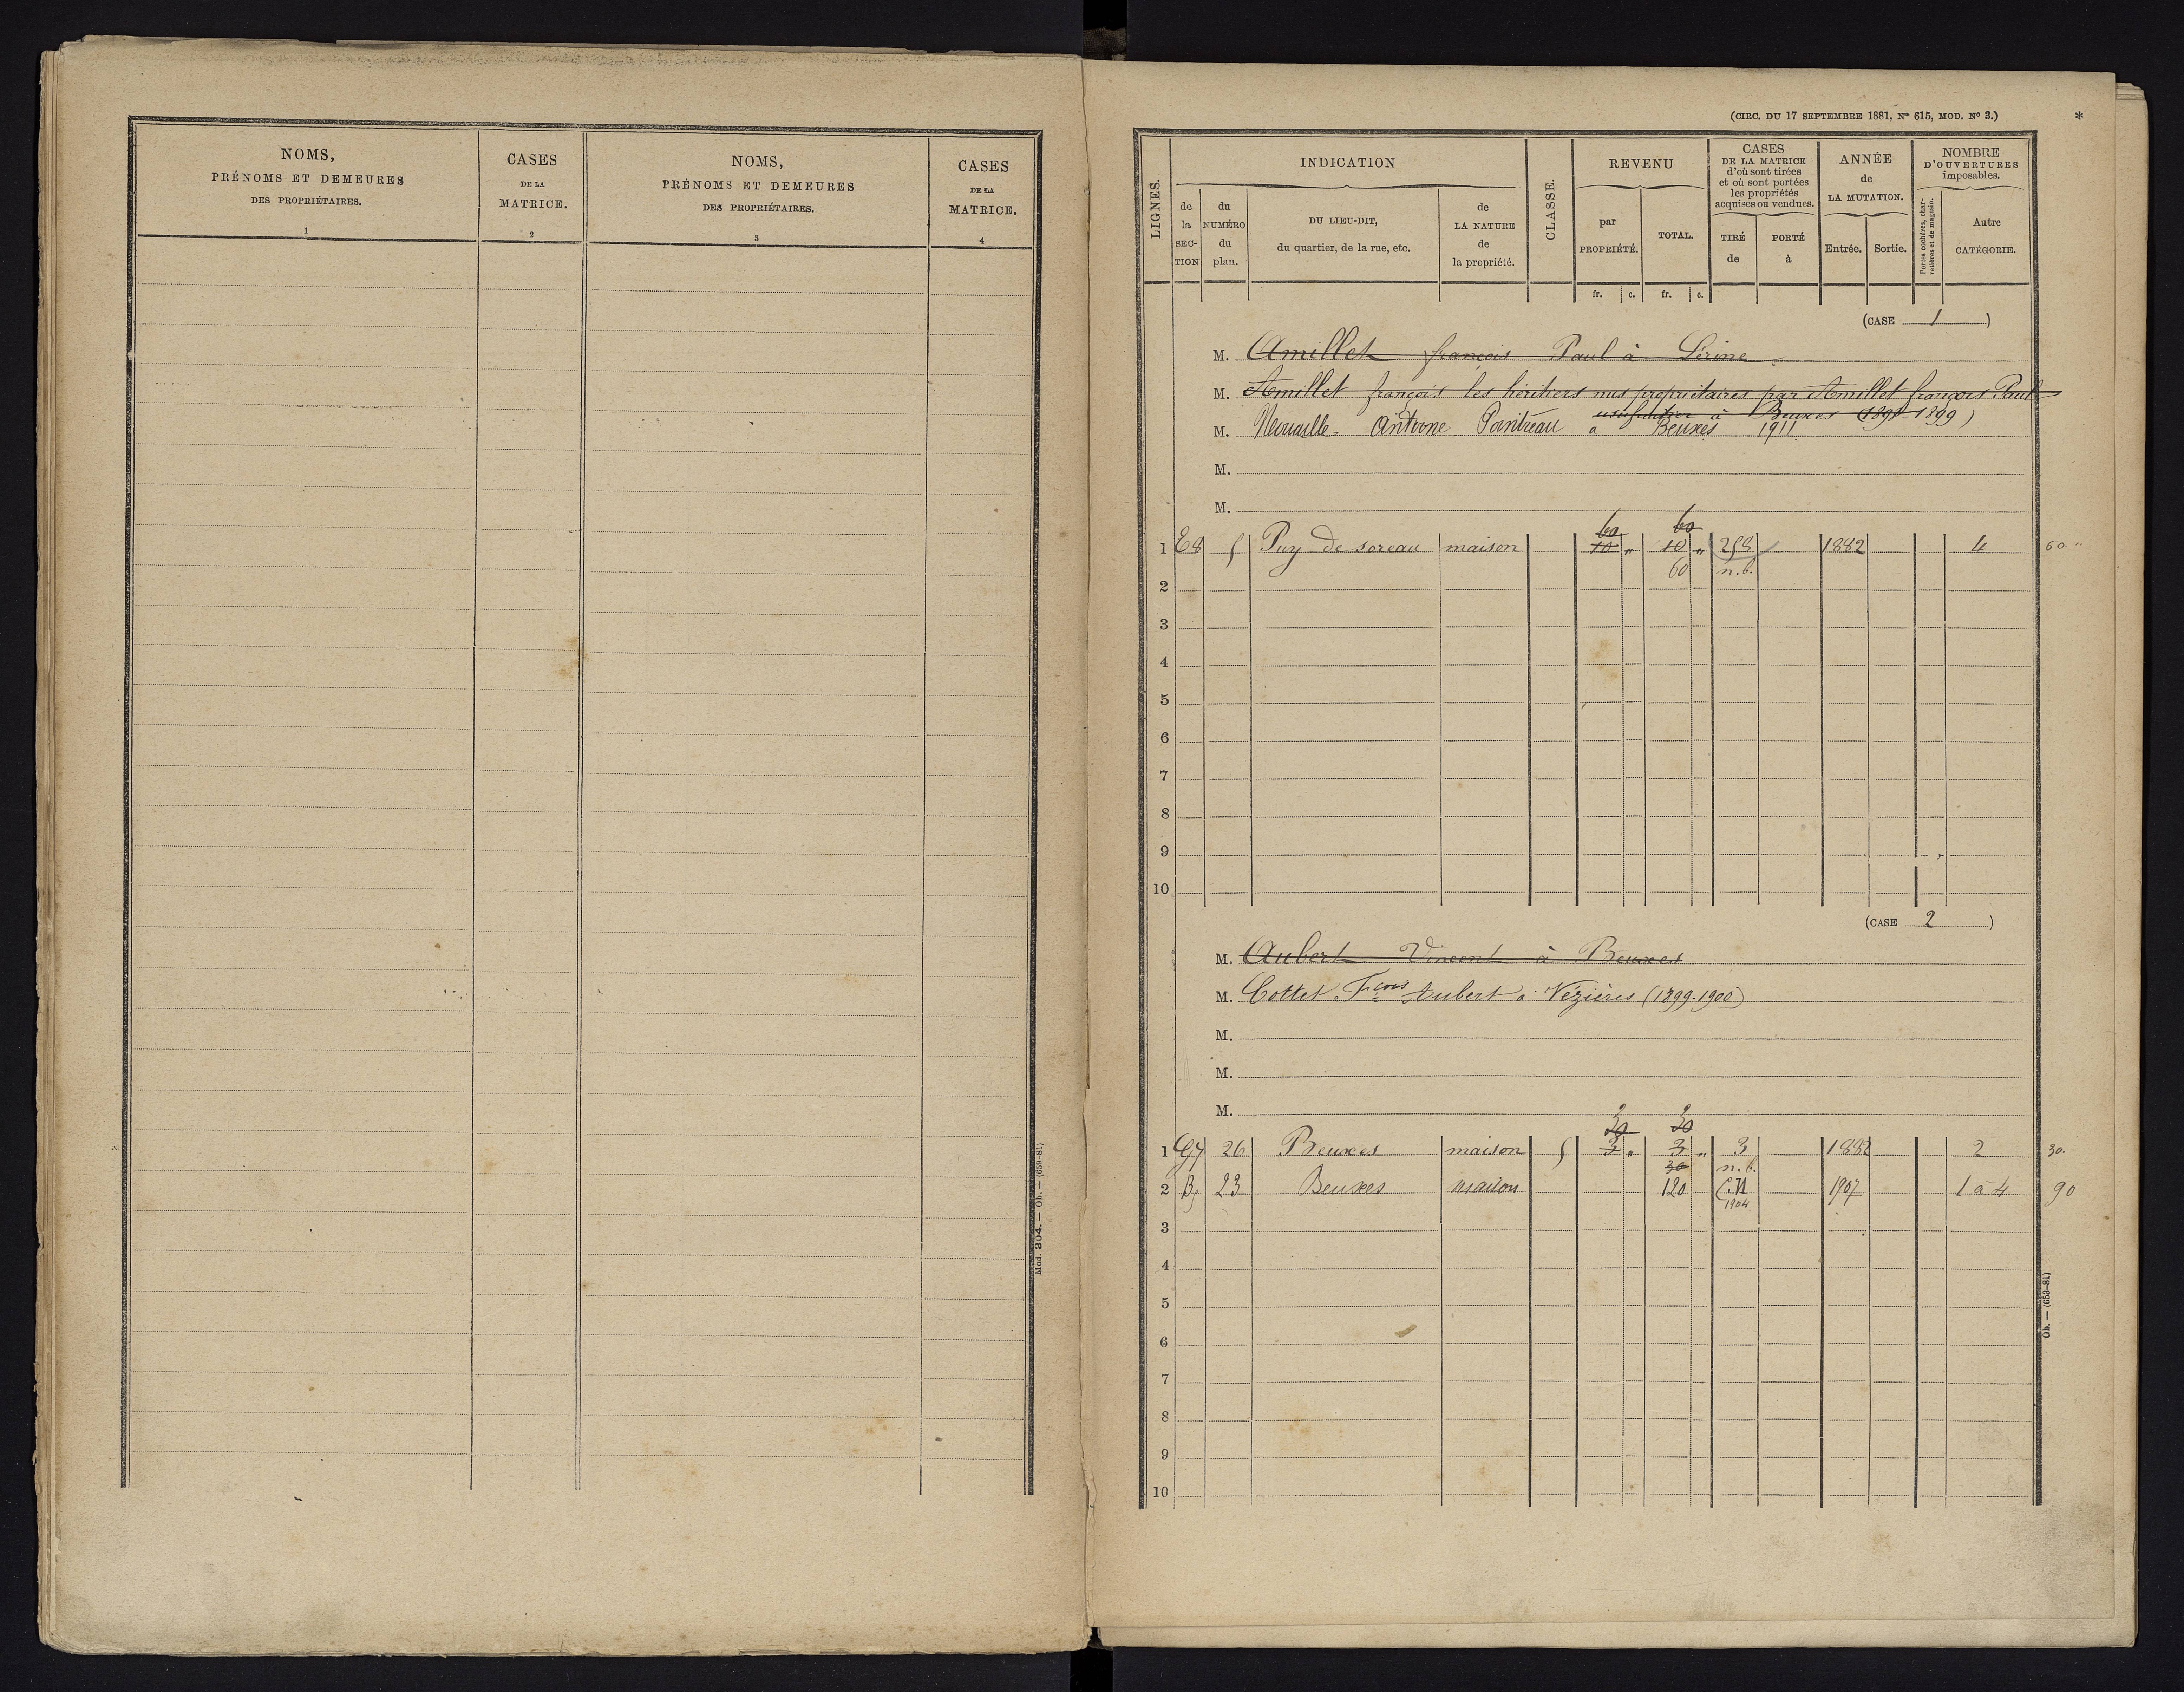 NOMS,
PRÉNOMS ET DEMEURES
DES PROPRIÉTAIRES.
1
CASES
DE LA
MATRICE.
2
NOMS,
PRÉNOMS ET DEMEURES
DES PROPRIÉTAIRES.
3
CASES
DE LA
MATRICE.
4
Mod. 304. — Ob. — (659-81)
(CIRC. DU 17 SEPTEMBRE 1881, N° 615, MOD. N° 3.)
*
LIGNES.
INDICATION
de la SECTION
du NUMÉRO du plan.
DU LIEU-DIT,
du quartier, de la rue, etc.
de LA NATURE de la propriété.
CLASSE.
REVENU
par PROPRIÉTÉ.
TOTAL.
fr. c. fr. c.
CASES
DE LA MATRICE
d'où sont tirées
et où sont portées
les propriétés
acquises ou vendues.
TIRÉ de
PORTÉ à
ANNÉE
de
LA MUTATION.
Entrée. Sortie.
NOMBRE
D'OUVERTURES
imposables.
Portes cochères, charretières et de magasin.
Autre CATÉGORIE.
(CASE 1)
M. Amillet françois Paul à
M. Amillet françois les héritiers nus propriétaires par Amillet françois Paul
usufruitier à Beuxes 1899)
M. Antoine Pointreau à Beuxes 1911
M.
M.
60 60
1 E8 5 Puy de soreau maison 10 " 10 " 258 1882 4 60 "
60 n.b.
2
3
4
5
6
7
8
9
10
(CASE 2)
M. Aubert Vincent à Beuxes
M. Cottet Fçois Aubert à Vézières (1899-1900)
M.
M.
M.
30 30
1 G7 26 Beuxes maison 5 3 " 3 " 3 1882 2 30.
30 n.b.
2 23 Beuxes maison 120 C.N 1907 1 à 4 90
1904
3
4
5
6
7
8
9
10
Ob. — (653-81)